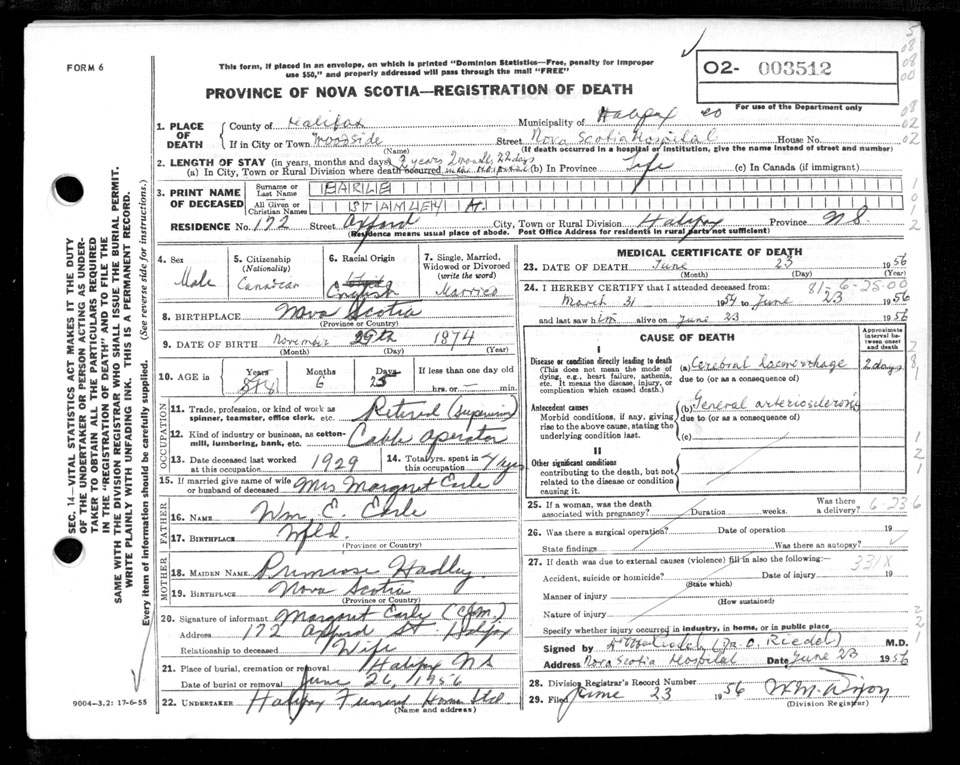 FORM 6
This form, if placed in an envelope, on which is printed "Dominion Statistics—Free, penalty for improper
use $50," and properly addressed will pass through the mail "FREE"
O2- 003512
For use of the Department only
PROVINCE OF NOVA SCOTIA—REGISTRATION OF DEATH
1. PLACE OF DEATH
County of Halifax Municipality of Halifax co
If in City or Town Woodside Street Nova Scotia Hospital House No.
(Name) (If death occurred in a hospital or institution, give the name instead of street and number)
2. LENGTH OF STAY (in years, months and days) 2 years 2 months 22 days
(a) In City, Town or Rural Division where death occurred in the Hospital (b) In Province Life (c) In Canada (if immigrant)
3. PRINT NAME OF DECEASED
Surname or Last Name EARLE
All Given or Christian Names STANLEY H.
RESIDENCE No. 172 Street Oxford City, Town or Rural Division Halifax Province N.S.
(Residence means usual place of abode. Post Office Address for residents in rural parts not sufficient)
4. Sex
Male
5. Citizenship
(Nationality)
Canadian
6. Racial Origin
English
7. Single, Married,
Widowed or Divorced
(write the word)
Married
8. BIRTHPLACE Nova Scotia
(Province or Country)
9. DATE OF BIRTH November 29th 1874
(Month) (Day) (Year)
10. AGE in Years Months Days If less than one day old
81 6 25 hrs. or — min.
OCCUPATION
11. Trade, profession, or kind of work as
spinner, teamster, office clerk. etc. Retired (Supervisor)
12. Kind of industry or business, as cotton-
mill, lumbering, bank, etc. Cable Operator
13. Date deceased last worked
at this occupation 1929
14. Total yrs. spent in
this occupation yrs
15. If married give name of wife
or husband of deceased Mrs Margaret Earle
FATHER
16. NAME Wm. E. Earle
17. BIRTHPLACE Nfld.
(Province or Country)
MOTHER
18. MAIDEN NAME Primrose Hadley
19. BIRTHPLACE Nova Scotia
(Province or Country)
20. Signature of informant Margaret Earle
Address 172 Oxford St. Halifax
Relationship to deceased Wife
21. Place of burial, cremation or removal Halifax NS
Date of burial or removal June 26, 1956
22. UNDERTAKER Halifax Funeral Home Ltd
(Name and address)
9004-3.2: 17-6-55
MEDICAL CERTIFICATE OF DEATH
23. DATE OF DEATH June 23 1956
(Month) (Day) (Year)
24. I HEREBY CERTIFY that I attended deceased from: 81-6-25-00
March 31 1954 to June 23 1956
and last saw him alive on June 23 1956
CAUSE OF DEATH
Approximate interval between onset and death
I
Disease or condition directly leading to death
(This does not mean the mode of
dying, e.g., heart failure, asthenia,
etc. It means the disease, injury, or
complication which caused death.)
(a) Cerebral haemorrhage 2 days
due to (or as a consequence of)
Antecedent causes
Morbid conditions, if any, giving
rise to the above cause, stating the
underlying condition last.
(b) General arteriosclerosis
due to (or as a consequence of)
(c)
II
Other significant conditions
contributing to the death, but not
related to the disease or condition
causing it.
25. If a woman, was the death
associated with pregnancy? Duration weeks. Was there a delivery? 6 23 6
26. Was there a surgical operation? Date of operation 19
State findings Was there an autopsy?
27. If death was due to external causes (violence) fill in also the following: 331X
Accident, suicide or homicide? Date of injury 19
(State which)
Manner of injury
(How sustained)
Nature of injury
Specify whether injury occurred in industry, in home, or in public place
Signed by (Dr. O. Riedel) M.D.
Address Nova Scotia Hospital Date June 23 1956
28. Division Registrar's Record Number
29. Filed June 23 1956
(Division Registrar)
SEC. 14—VITAL STATISTICS ACT MAKES IT THE DUTY
OF THE UNDERTAKER OR PERSON ACTING AS UNDER-
TAKER TO OBTAIN ALL THE PARTICULARS REQUIRED
IN THE "REGISTRATION OF DEATH" AND TO FILE THE
SAME WITH THE DIVISION REGISTRAR WHO SHALL ISSUE THE BURIAL PERMIT.
WRITE PLAINLY WITH UNFADING INK. THIS IS A PERMANENT RECORD.
Every item of information should be carefully supplied. (See reverse side for instructions.)